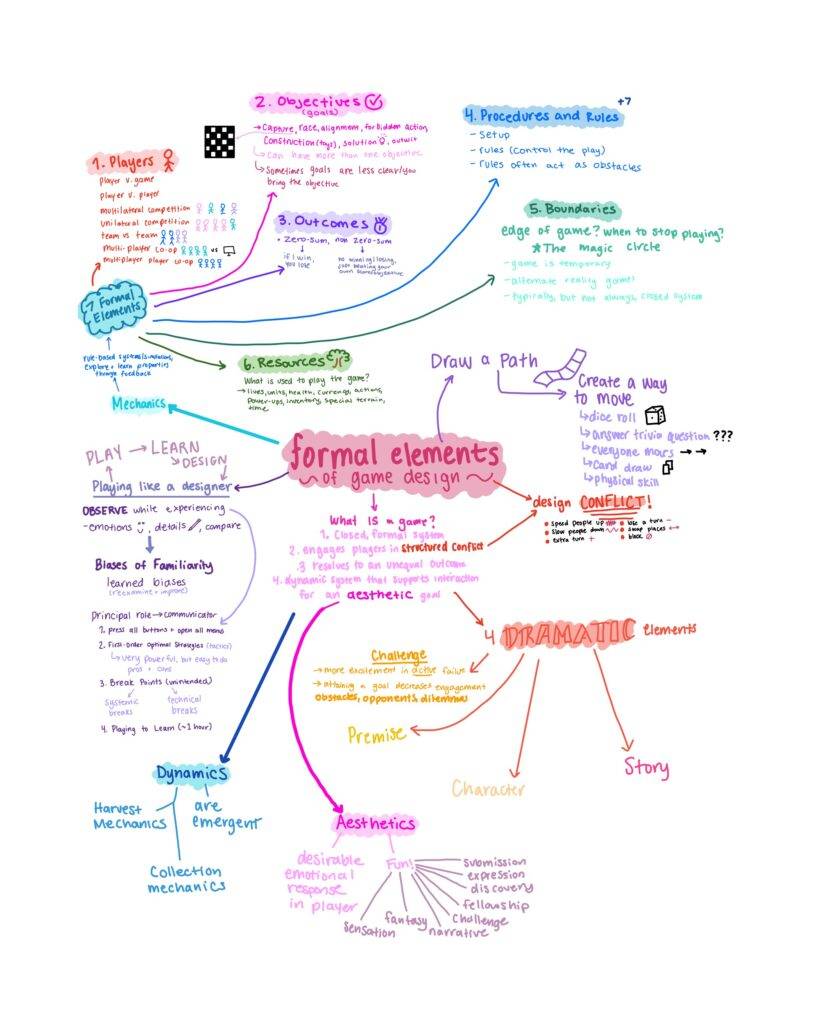 2. Objectives
(goals)
→ Capture, race, alignment, forbidden action,
Construction (toys), solution, outwit
↳ Can have more than one objective
↳ Sometimes goals are less clear/you
bring the objective
+7
4. Procedures and Rules
- setup
- rules (control the play)
- rules often act as obstacles
1. Players
player v. game
player v. player
multilateral competition
unilateral competition
team vs team
multi-player co-op vs
multiplayer player co-op
3. Outcomes
• Zero-sum, non zero-sum
if I win,
you lose
no winning/losing,
your own score/objective
5. Boundaries
edge of game? when to stop playing?
★ The magic circle
- game is temporary
- alternate reality game?
- typically, but not always, closed system
7 Formal
Elements
6. Resources
What is used to play the game?
→ lives, units, health, currency, actions,
Power-ups, inventory, special terrain,
time
rule-based systems/simulations,
explore + learn properties
through feedback
Mechanics
Draw a Path
Create a way
to move
↳ dice roll
↳ answer trivia question ???
↳ everyone moves → →
↳ Card draw
↳ physical skill
formal elements
~ of game design ~
PLAY → LEARN
↘ DESIGN
Playing like a designer
OBSERVE while experiencing
- emotions, details, compare
Biases of Familiarity
learned biases
(reexamine + improve)
Principal role → communicator
1. press all buttons + open all menus
2. First-Order Optimal Strategies (tactics)
↳ very powerful, but easy to do
pros + cons
3. Break Points (unintended)
systemic
breaks
technical
breaks
4. Playing to Learn (~1 hour)
What IS a game?
1. Closed, formal system
2. engages players in structured conflict
3 resolves to an unequal outcome
4. dynamic system that supports interaction
for an aesthetic goal
design CONFLICT!
• Speed people up
• Slow people down
• extra turn +
• lose a turn -
• Swap places
• block
4 DRAMATIC elements
Challenge
→ more excitement in active failure
→ attaining a goal decreases engagement
obstacles, opponents, dilemmas
Premise
Character
Story
Dynamics
Harvest
Mechanics
are
emergent
Collection
mechanics
Aesthetics
desirable
emotional
response
in player
Fun!
submission
expression
discovery
fellowship
Challenge
narrative
fantasy
sensation